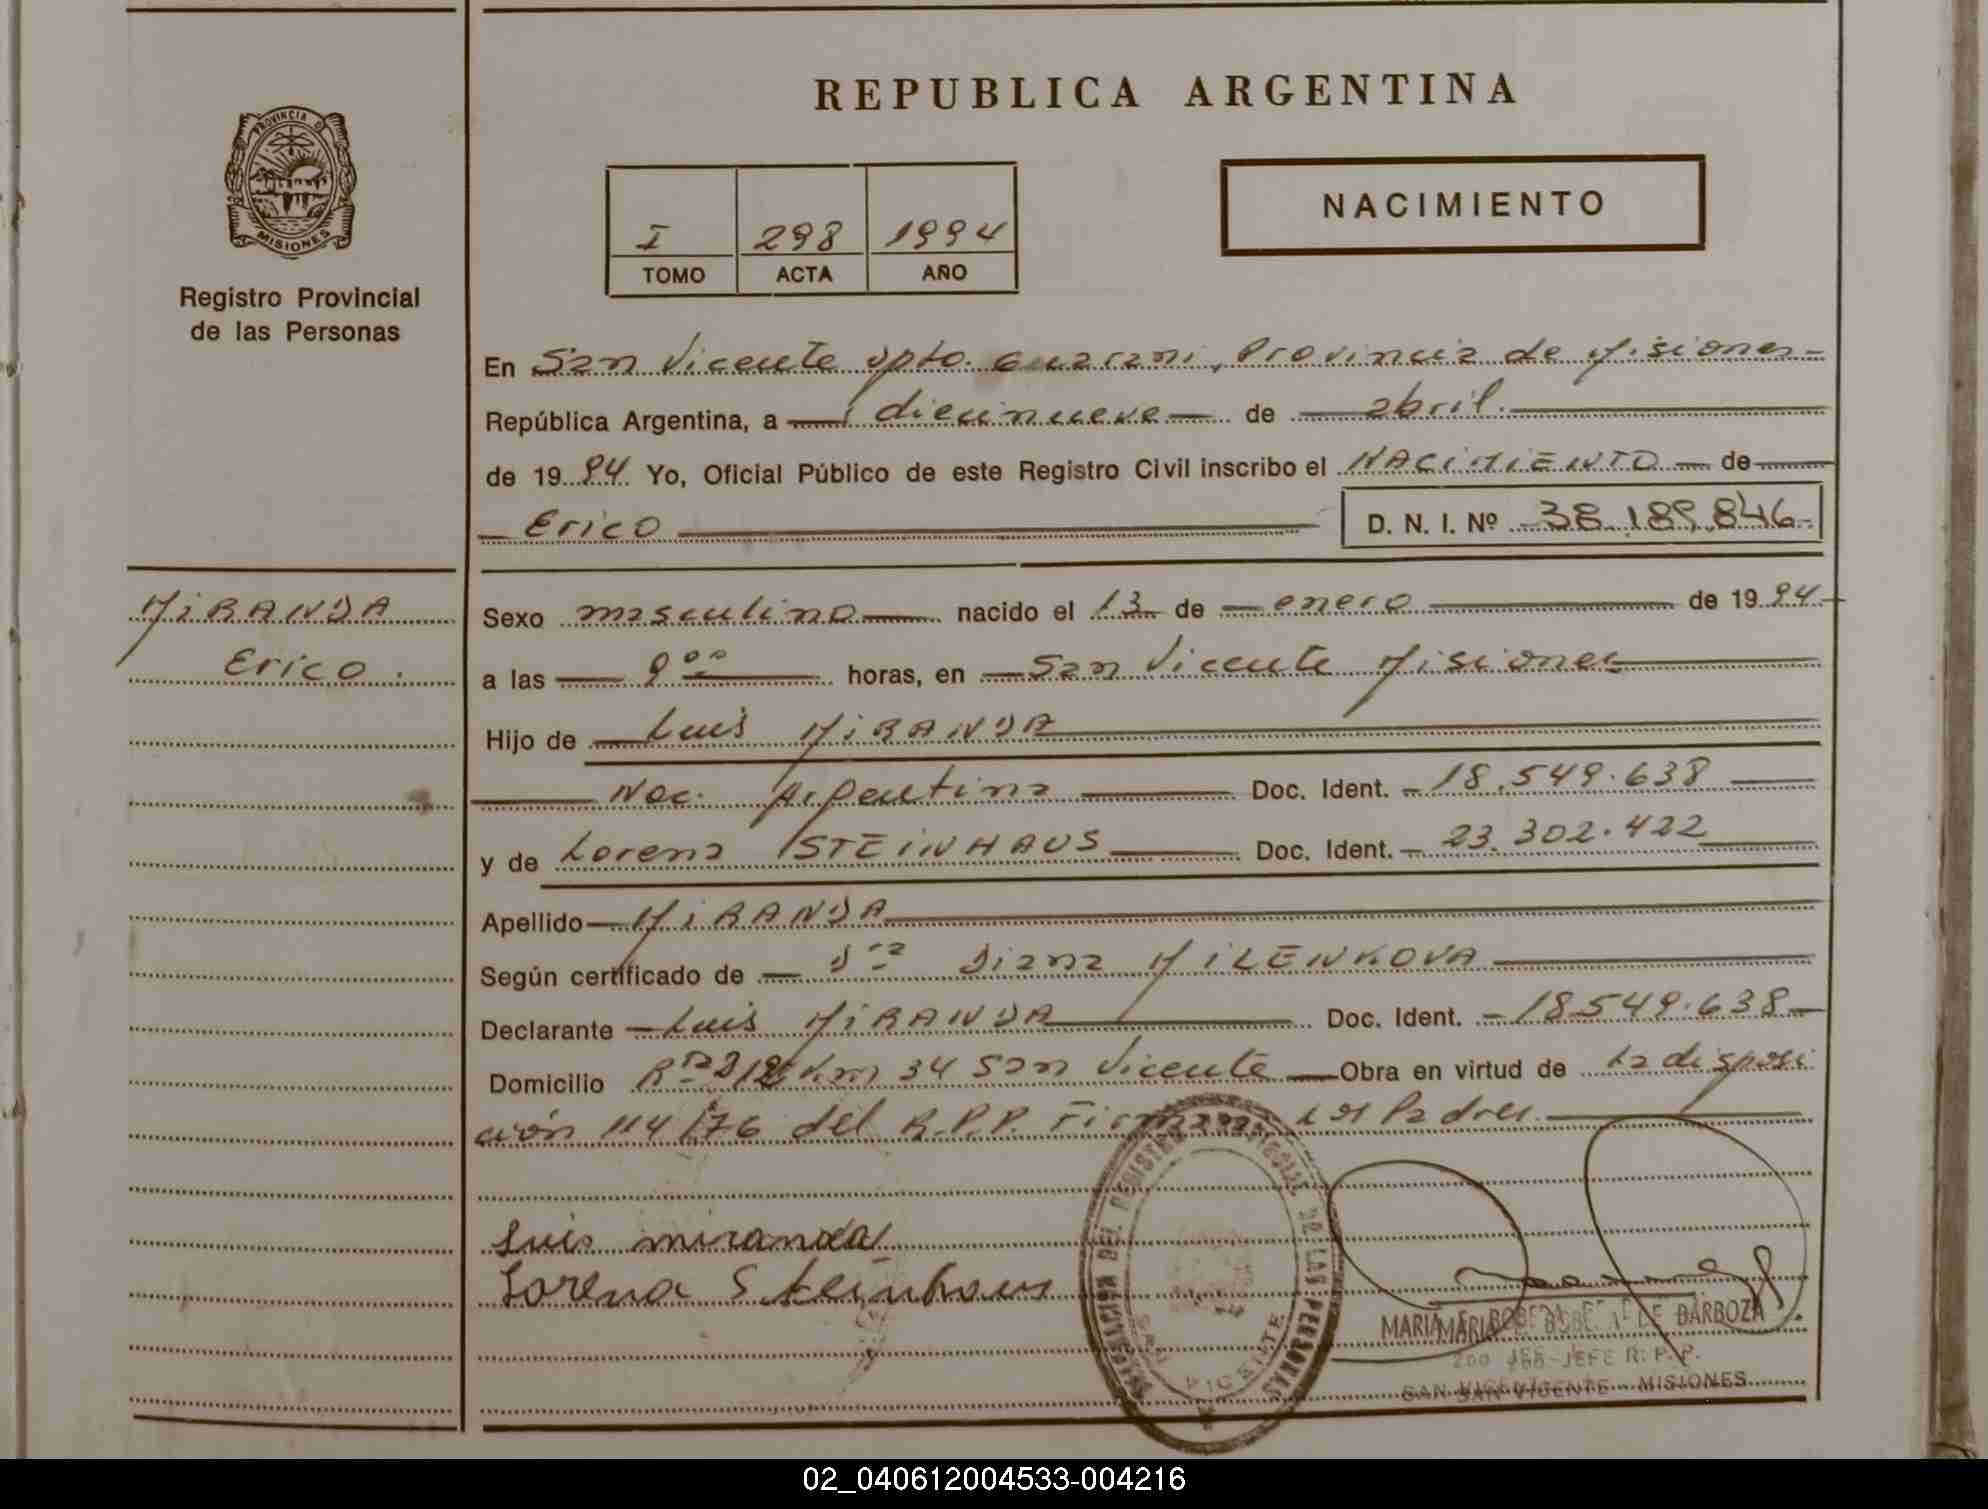 REPUBLICA ARGENTINA
PROVINCIA DE
MISIONES
Registro Provincial
de las Personas
I 298 1994
TOMO ACTA AÑO
NACIMIENTO
En San Vicente Dpto. Guarani, Provincia de Misiones
República Argentina, a diecinueve de abril
de 1994 Yo, Oficial Público de este Registro Civil inscribo el NACIMIENTO de
Erico D. N. I. Nº 38.189.846
MIRANDA
Erico.
Sexo masculino nacido el 13 de enero de 1994
a las 9 00 horas, en San Vicente Misiones
Hijo de Luis MIRANDA
Nac. Argentina Doc. Ident. 18.549.638
y de Lorena STEINHAUS Doc. Ident. 23.302.422
Apellido MIRANDA
Según certificado de Dra Diana MILENKOVA
Declarante Luis MIRANDA Doc. Ident. 18.549.638
Domicilio Rta Km 34 San Vicente Obra en virtud de La disposi
ción 114/76 del R.P.P. Firman Los Padres.
Luis miranda
Lorena Steinhaus
DELEGACION DEL REGISTRO PROVINCIAL DE LAS PERSONAS
SAN VICENTE
MARIA E. DE BARBOZA
2do JEFE R. P. P.
SAN VICENTE - MISIONES
02_040612004533-004216